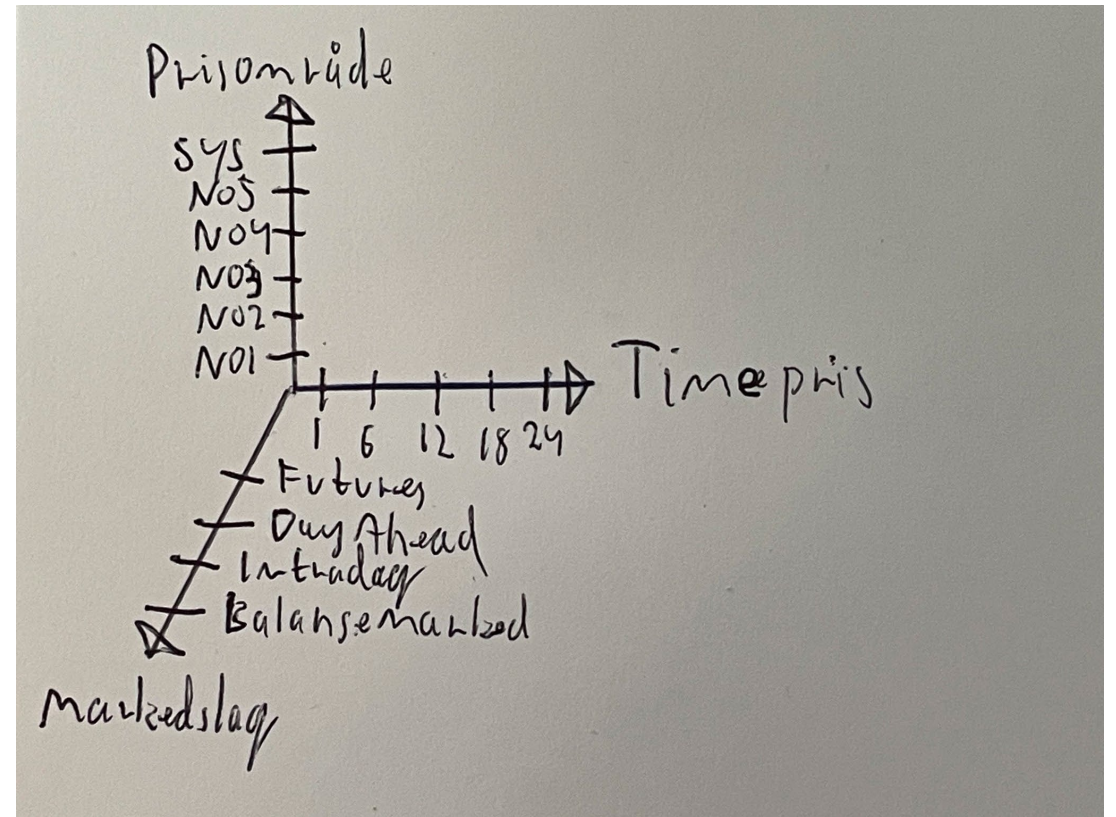 Prisområde
SYS
NO5
NO4
NO3
NO2
NO1
Timepris
1 6 12 18 24
Futures
Day Ahead
Intradag
Balansemarked
Markedslag